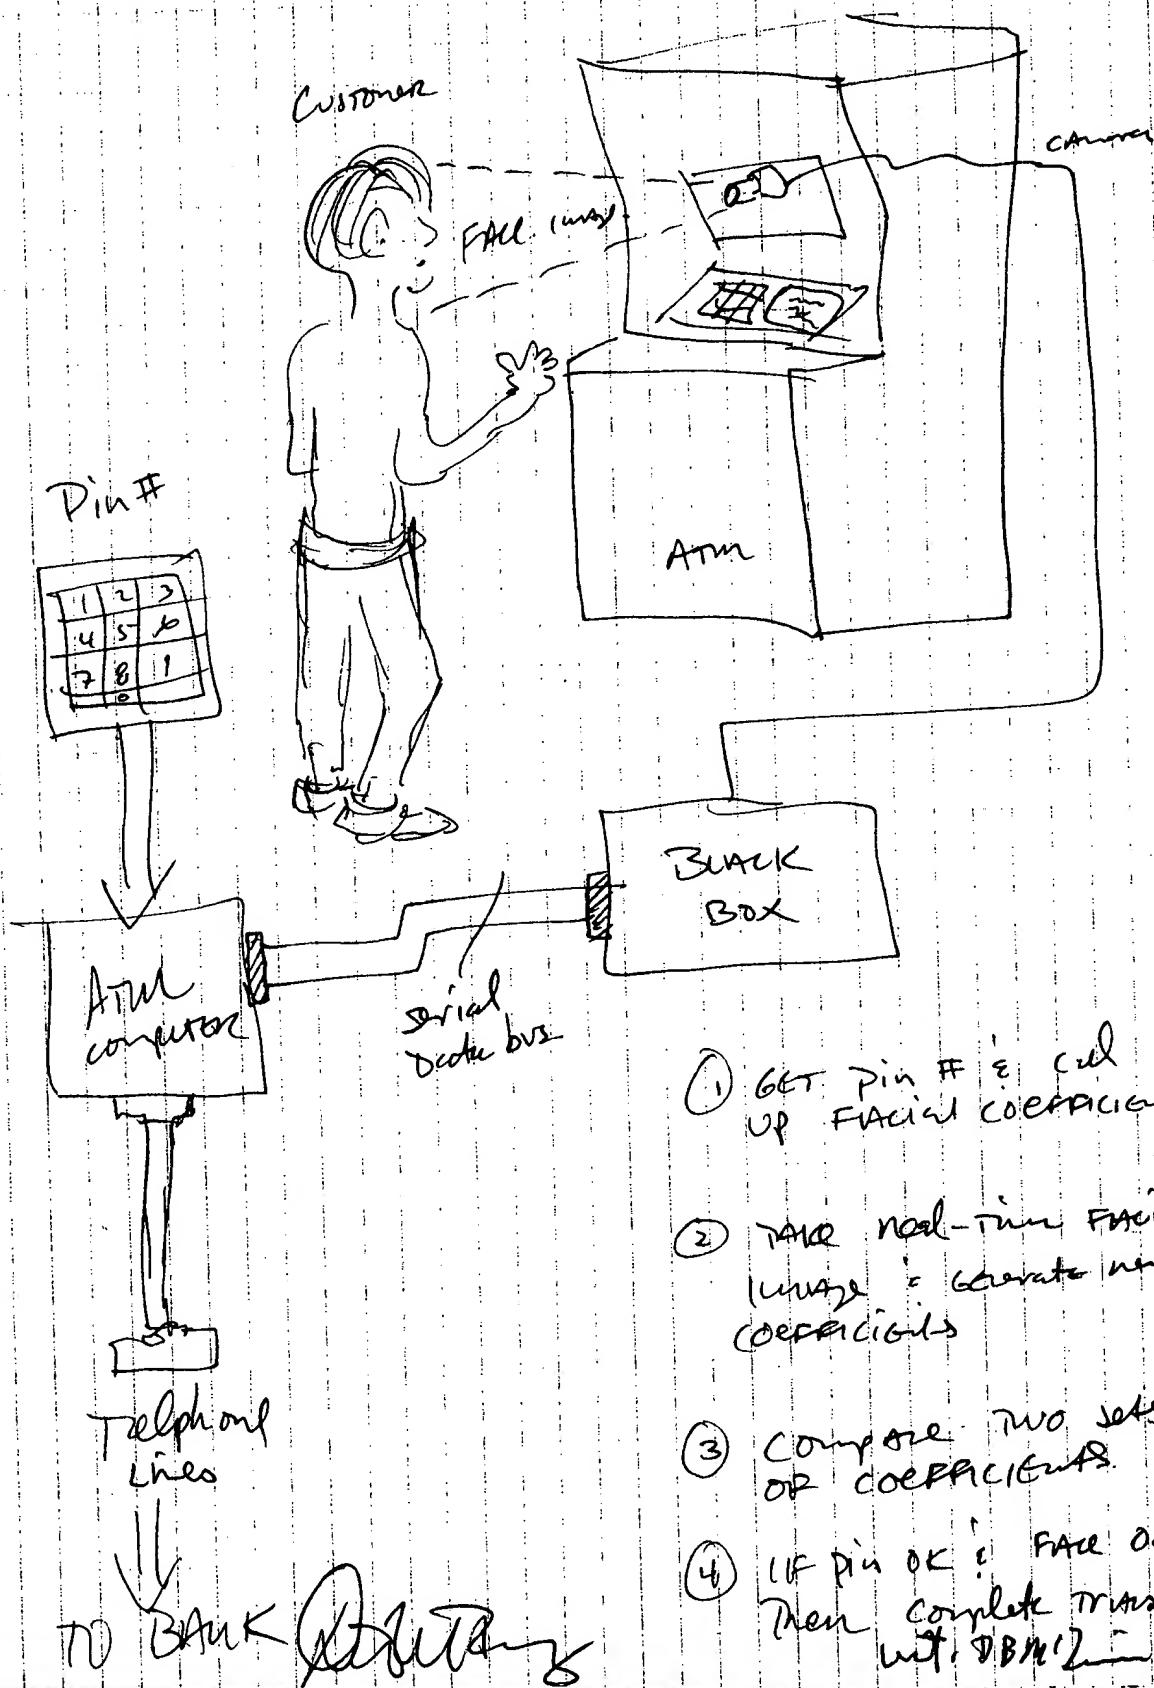 Customer
Camera
Face image
Pin #
1 2 3
4 5 6
7 8 9
0
ATM
Black
Box
ATM
computer
serial
Data bus
Telphone
Lines
TO BANK
① GET pin # & call
up Facial COEFFICIE
② TAKE real-time Faci
Image & Generate ne
COEFFICIENTS
③ Compare Two sets
OF COEFFICIENTS.
④ IF pin OK & FACE O
Then complete Trans
wit.